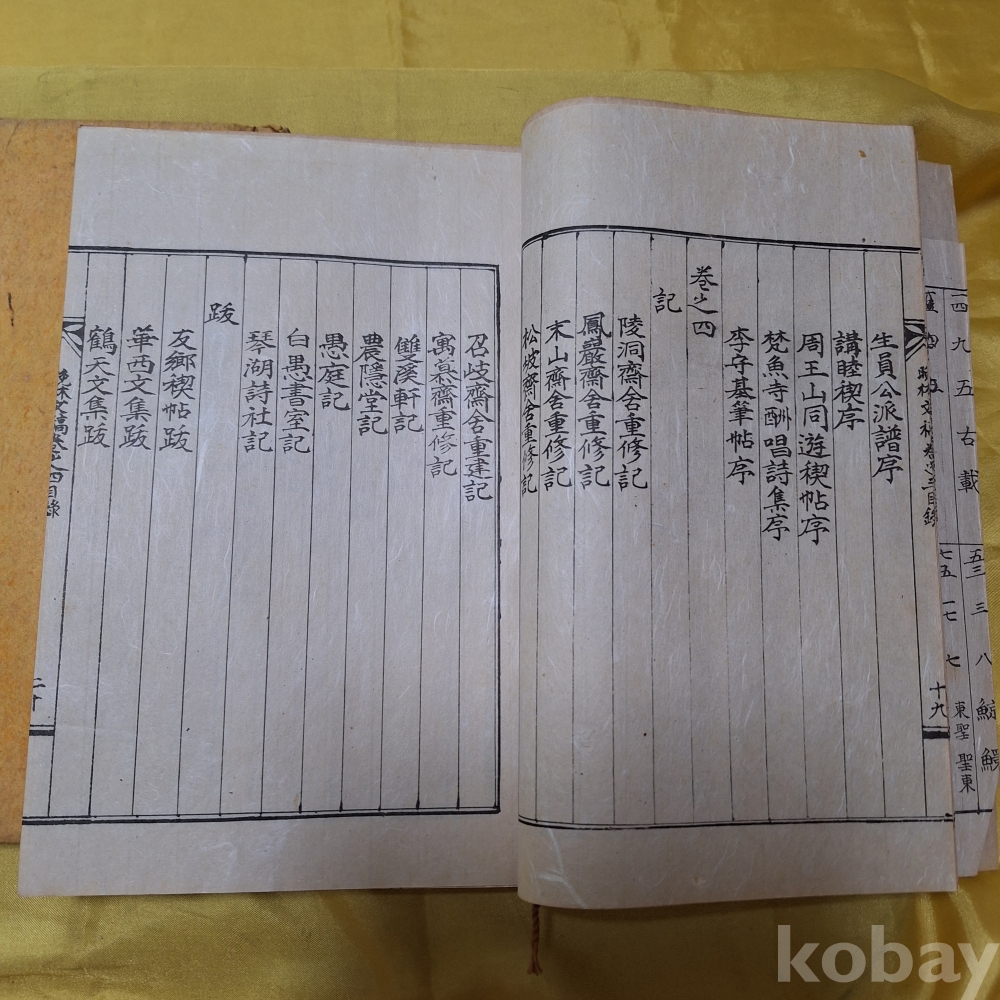 十九
生員公派譜序
講睦稧序
周王山同遊稧帖序
梵魚寺酬唱詩集序
李守基筆帖序
卷之四
記
陵洞齋舍重修記
鳳巖齋舍重修記
末山齋舍重修記
松坡齋舍重修記
召岐齋舍重建記
寓慕齋重修記
雙溪軒記
農隱堂記
愚庭記
白愚書室記
琴湖詩社記
跋
友鄉稧帖跋
華西文集跋
鶴天文集跋
四目錄
二十
kobay